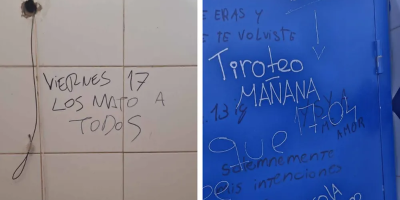 VIERNES 17
LOS MATO A
TODOS
ERAS Y
TE VOLVISTE
Tiroteo
MAÑANA
13
17-04
que
AMOR
solemnemente
mis intenciones